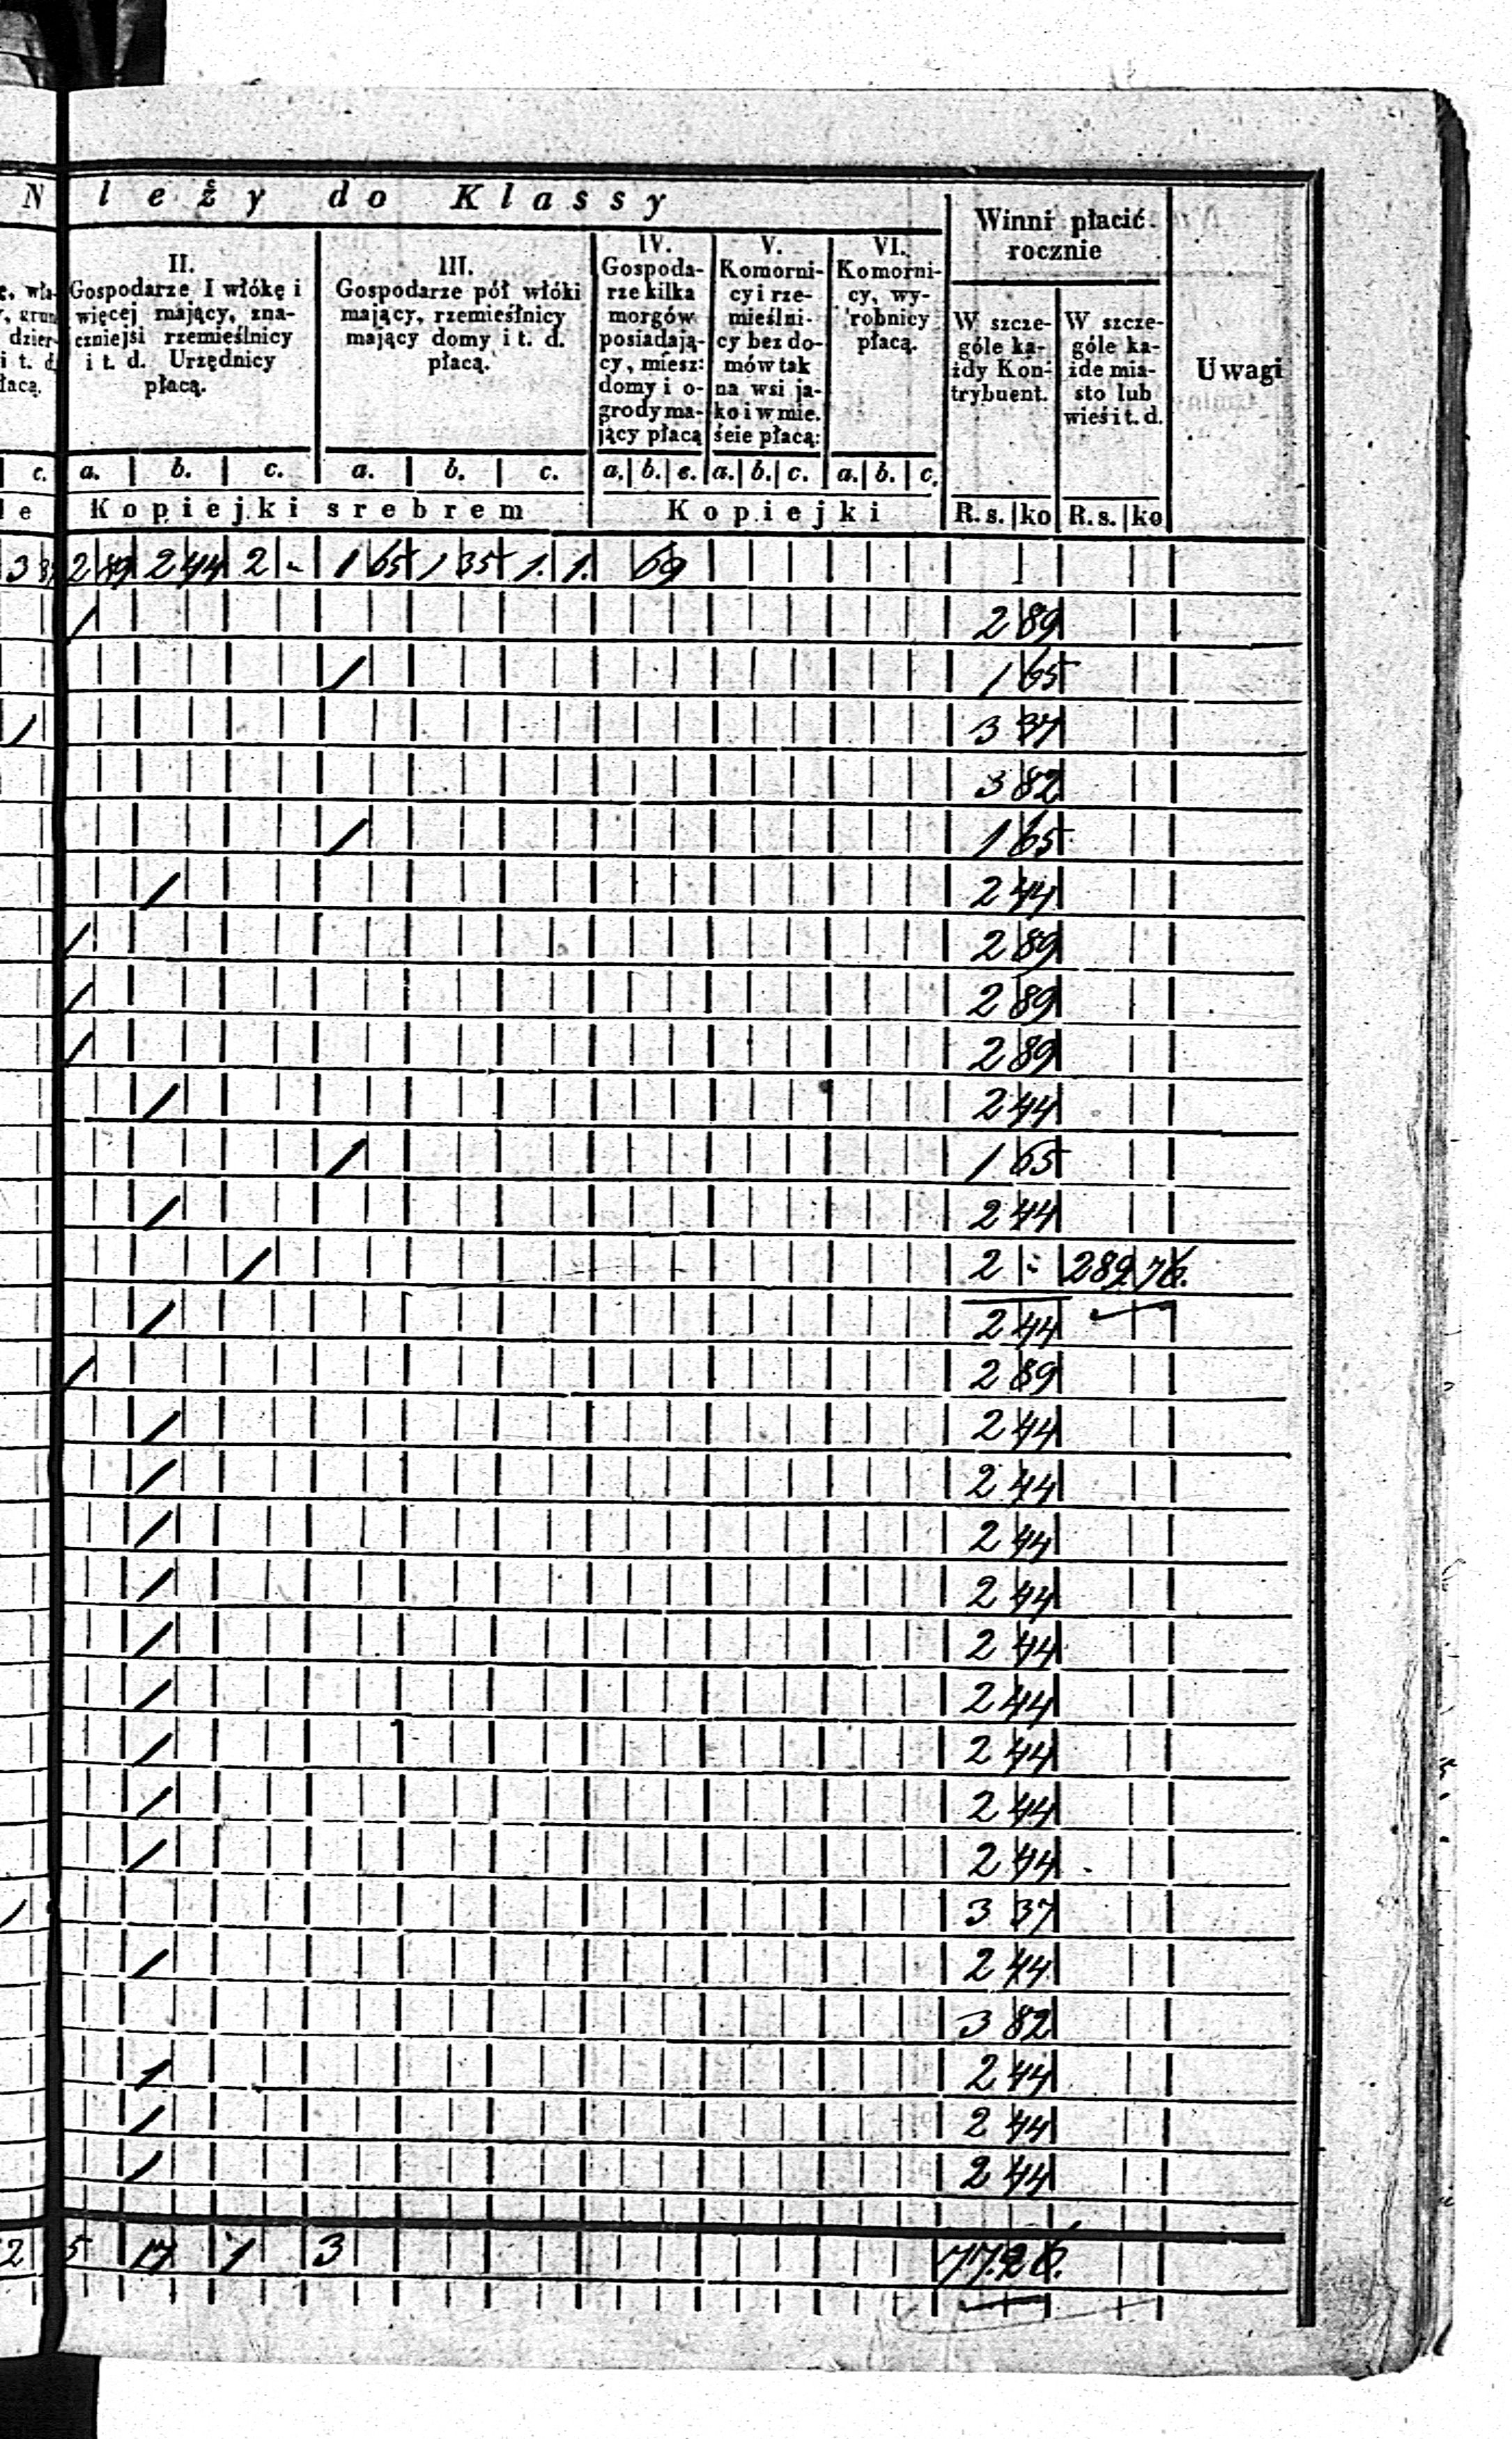 N leży do Klassy
Winni płacić
rocznie
II.
Gospodarze I włókę i
więcej mający, zna-
czniejsi rzemieślnicy
i t. d. Urzędnicy
płacą.
III.
Gospodarze pół włóki
mający, rzemieślnicy
mający domy i t. d.
płacą.
IV.
Gospoda-
rze kilka
morgów
posiadają-
cy, miesz:
domy i o-
grody ma-
jący płacą
V.
Komorni-
cy i rze-
mieślni-
cy bez do-
mów tak
na wsi ja-
ko i w mie.
ście płacą:
VI.
Komorni-
cy, wy-
robnicy
płacą.
W szcze-
góle ka-
idy Kon-
trybuent.
W szcze-
góle ka-
ide mia-
sto lub
wieś i t. d.
Uwagi
c. a. b. c. a. b. c. a. b. c. a. b. c. a. b. c.
le Kopiejki srebrem Kopiejki R. s. ko R. s. ko
3 2 89 2 44 2 - 1 65 1 35 1. 1. 69
/ 2 89
/ 1 65
/ 3 37
3 82
/ 1 65
/ 2 44
/ 2 89
/ 2 89
/ 2 89
/ 2 44
/ 1 65
/ 2 44
/ 2 : 282 76.
/ 2 44
/ 2 89
/ 2 44
/ 2 44
/ 2 44
/ 2 44
/ 2 44
/ 2 44
/ 2 44
/ 2 44
/ 2 44
/ 3 37
/ 2 44
3 82
/ 2 44
/ 2 44
/ 2 44
2 5 17 1 3 77.26.